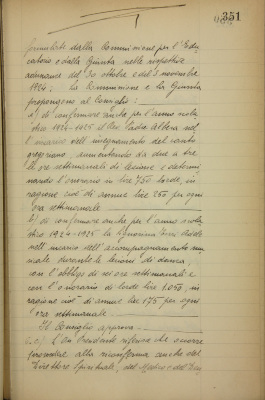 351
formulate dalla Commissione per l'Edu-
catorio e dalla Giunta nelle rispettive
adunanze del 30 ottobre e del 5 novembre
1924; la Commissione e la Giunta
propongono al Consiglio:
a) di confermare anche per l'anno scola-
stico 1924-1925 il Rev. Padre Albera nel-
l'incarico dell'insegnamento del canto
gregoriano, aumentando da due a tre
le ore settimanali di lezione, e determi-
nando l'onorario in lire 750 lorde, in
ragione cioè di annue lire 250 per ogni
ora settimanale
b) di confermare anche per l'anno scola-
stico 1924-1925 la signorina
nell'incarico dell'accompagnamento mu-
sicale durante le lezioni di danza,
con l'obbligo di sei ore settimanali e
con l'onorario di lorde lire 1.050, in
ragione cioè di annue lire 175 per ogni
ora settimanale
Il Consiglio approva.
Presidente riferisce che occorre
provvedere alla riconferma anche del
Direttore Spirituale, del Medico e dell'